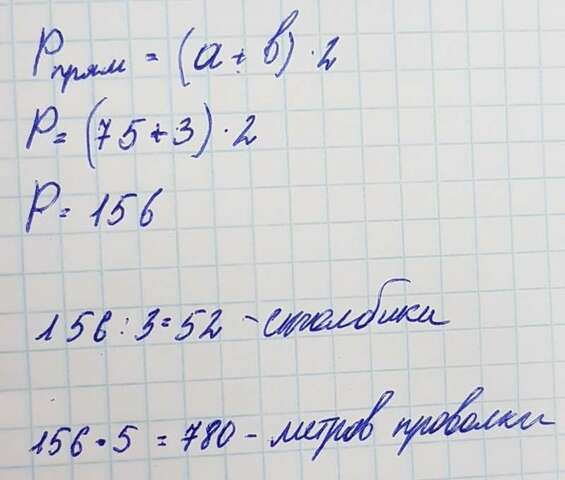 Pпрям = (a + b) · 2
P = (75 + 3) · 2
P = 156
156 : 3 = 52 - столбики
156 · 5 = 780 - метров проволки